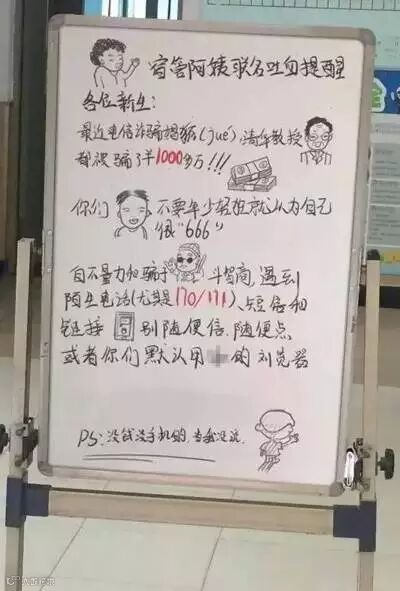 宿管阿姨联名吐血提醒
各位新生:
最近电信诈骗猖獗(jué),清华教授
都被骗了1000多万!!!
你们 不要年少轻狂就认为自己
很“666”
自不量力和骗子 斗智商,遇到
陌生电话(尤其是170/171)、短信和
链接 别随便信、随便点
或者你们默认用 的浏览器
PS:没钱没手机的,当我没说.